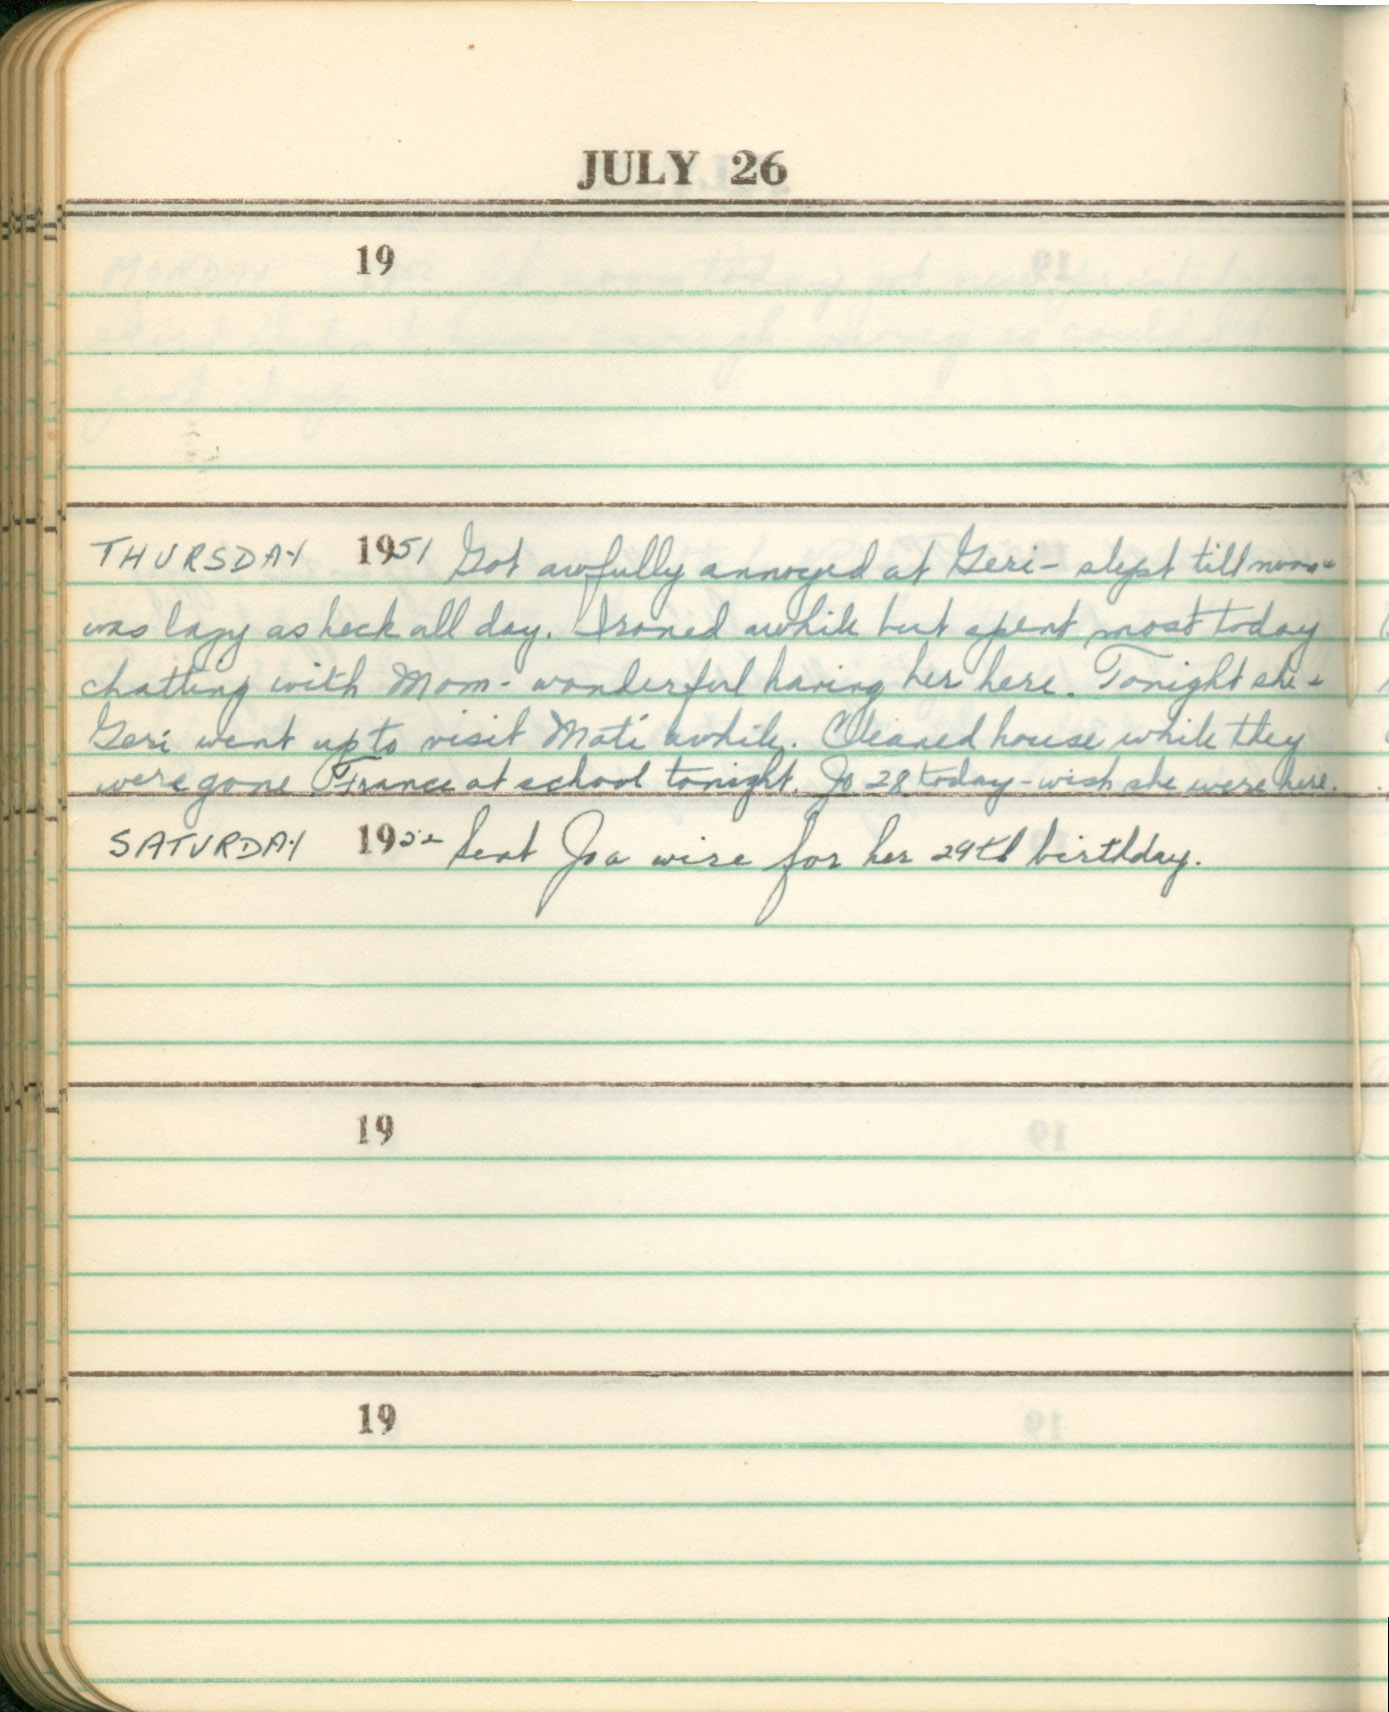 JULY 26
19
THURSDAY 1951 Got awfully annoyed at Geri - slept till noon +
was lazy as heck all day. Ironed awhile but spent most today
chatting with Mom - wonderful having her here. Tonight she +
Geri went up to visit Mati awhile. Cleaned house while they
were gone. France at school tonight. Jo 28 today - wish she were here.
SATURDAY 1952 Sent Jo a wire for her 29th birthday.
19
19